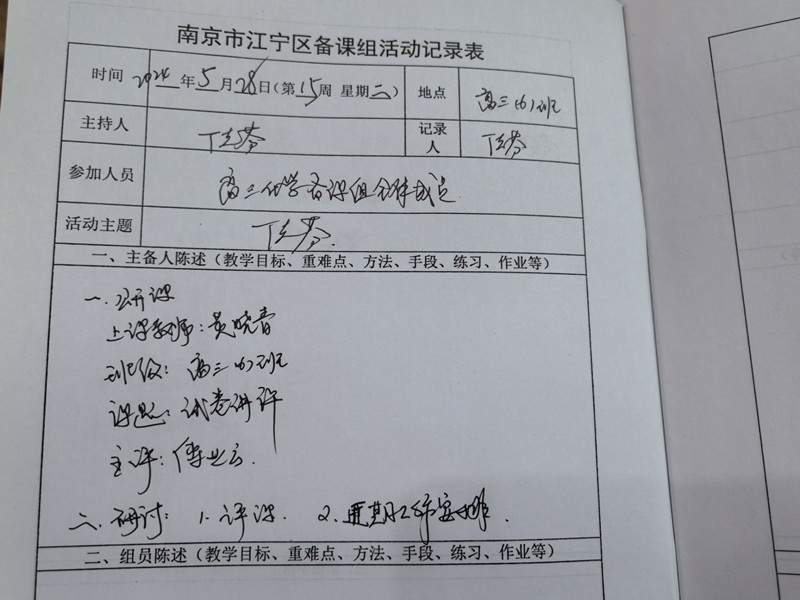 南京市江宁区备课组活动记录表
时间 2024年5月28日(第15周 星期二) 地点 高三(6)班
主持人 丁志芬 记录人 丁志芬
参加人员 高三化学备课组全体成员
活动主题 丁志芬
一、主备人陈述(教学目标、重难点、方法、手段、练习、作业等)
一.公开课
上课教师:黄晓青
班级:高三(6)班
课题:试卷讲评
主评:傅业云.
二.研讨: 1.评课. 2.近期工作安排.
二、组员陈述(教学目标、重难点、方法、手段、练习、作业等)